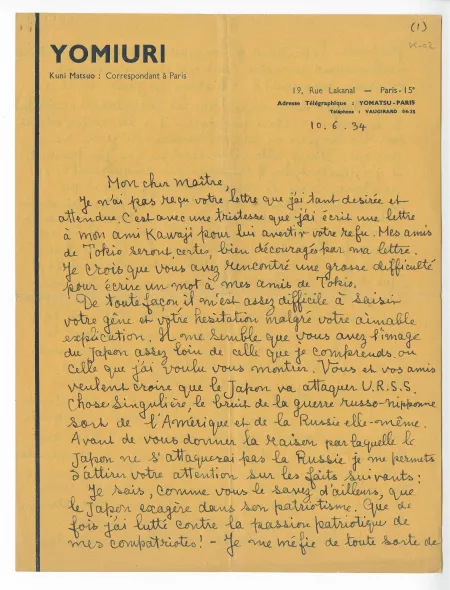 (1)
YOMIURI
Kuni Matsuo : Correspondant à Paris
19, Rue Lakanal — Paris-15e
Adresse Télégraphique : YOMATSU-PARIS
Téléphone : VAUGIRARD 06.28
10.6.34
Mon cher maître,
Je n'ai pas reçu votre lettre que j'ai tant desirée et
attendue. C'est avec une tristesse que j'ai écrit une lettre
à mon ami Kawaji pour lui avertir votre refu. Mes amis
de Tokio seront, certes, bien découragés par ma lettre.
Je crois que vous avez rencontré une grosse difficulté
pour écrire un mot à mes amis de Tokio.
De toute façon il m'est assez difficile à saisir
votre gêne et votre hesitation malgré votre aimable
explication. Il me semble que vous avez l'image
du Japon assez loin de celle que je comprends ou
celle que j'ai voulu vous montrer. Vous et vos amis
veulent croire que le Japon va attaquer U.R.S.S.
Chose singulière, le bruit de la guerre russo-nipponne
sort de l'Amérique et de la Russie elle-même.
Avant de vous donner la raison par laquelle le
Japon ne s'attaquerai pas la Russie je me permets
d'attirer votre attention sur les faits suivants :
Je sais, comme vous le savez d'ailleurs, que
le Japon exagère dans son patriotisme. Que de
fois j'ai lutté contre la passion patriotique de
mes compatriotes! - Je me méfie de toute sorte de